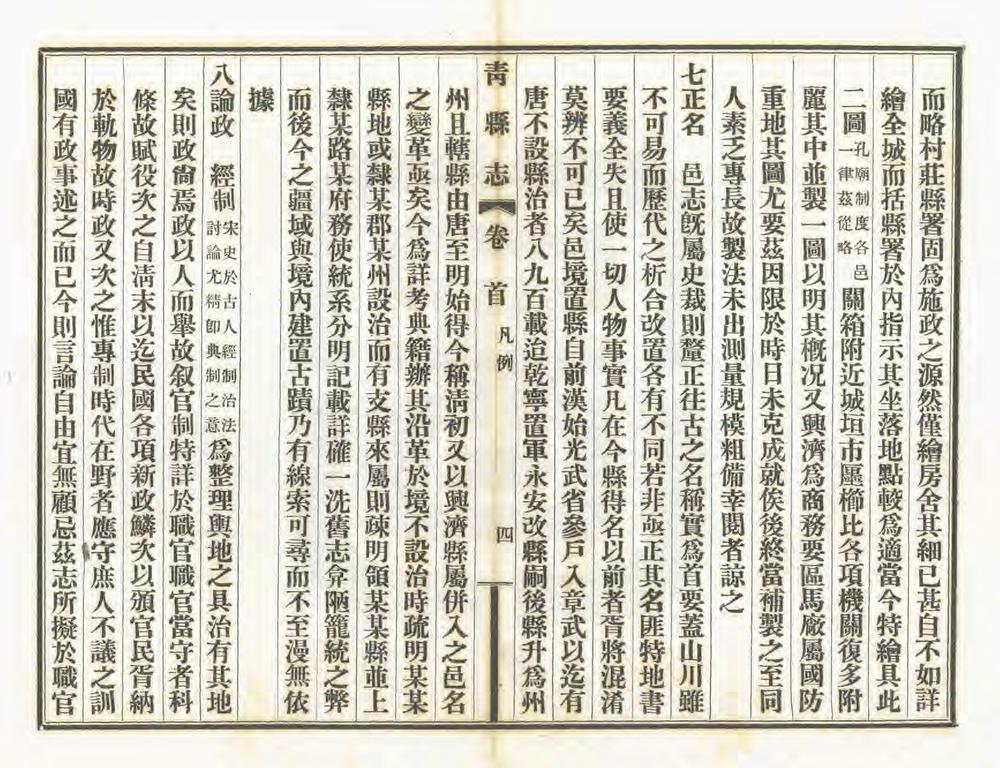 而略村莊縣署固爲施政之源然僅繪房舍其細已甚自不如詳
繪全城而括縣署於內指示其坐落地點較爲適當今特繪具此
二圖孔廟制度各邑一律茲從略關箱附近城垣市廛櫛比各項機關復多附
麗其中並製一圖以明其槪况又興濟爲商務要區馬廠屬國防
重地其圖尤要茲因限於時日未克成就俟後終當補製之至同
人素乏專長故製法未出測量規模粗備幸閱者諒之
七正名　邑志旣屬史裁則釐正往古之名稱實爲首要蓋山川雖
不可易而歷代之析合改置各有不同若非亟正其名匪特地書
要義全失且使一切人物事實凡在今縣得名以前者胥將混淆
莫辨不可已矣邑境置縣自前漢始光武省參戶入章武以迄有
唐不設縣治者八九百載迨乾寧置軍永安改縣嗣後縣升爲州
靑縣志　卷首　凡例　四
州且轄縣由唐至明始得今稱淸初又以興濟縣屬併入之邑名
之變革亟矣今爲詳考典籍辦其沿革於境不設治時疏明某某
縣地或隸某郡某州設治而有支縣來屬則疎明領某某縣並上
隸某路某府務使統系分明記載詳確一洗舊志弇陋籠統之弊
而後今之疆域與境內建置古蹟乃有線索可尋而不至漫無依
據
八論政　經制宋史於古人經制治法討論尤精卽典制之意爲整理輿地之具治有其地
矣則政尙焉政以人而舉故叙官制特詳於職官職官當守者科
條故賦役次之自淸末以迄民國各項新政鱗次以頒官民胥納
於軌物故時政又次之惟專制時代在野者應守庶人不議之訓
國有政事述之而已今則言論自由宜無顧忌茲志所擬於職官